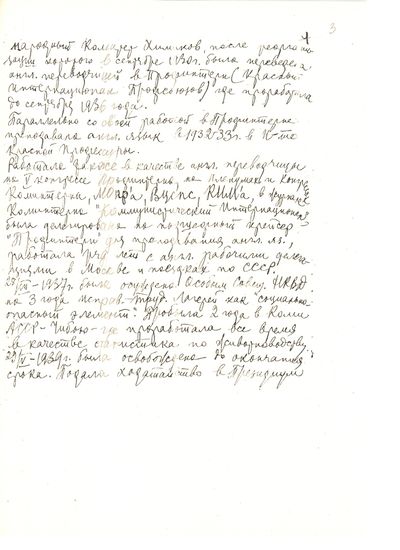 3
народный Комиссар Химиков, после реорга
низации которого в сентябре 1930г. была переведена
англ. переводчицей в Профинтерн (Красный
Интернационал Профсоюзов) где проработала
до сентября 1936 года.
Параллельно со своей работой в Профинтерне
преподавала англ. язык с 1932-33г. в И-те
Красной Профессуры.
Работала также в качестве англ. переводчицы
на V конгрессе Профинтерна, на пленумах и конгр.
Коминтерна, МОПР'а, ВЦСПС, в журнале
Коминтерна "Коммунистический Интернационал"
была делегирована на крейсер
"Профинтерн" для преподавания англ. яз.,
работала ряд лет с англ. рабочими делега
циями в Москве и поездках по СССР.
1937г. была осуждена Особым Совещ. НКВД
на 3 года исправ.-труд. лагерей как социально
опасный элемент. Провела 2 года в Коми
АССР - Чибью - где проработала все время
в качестве статистика по животноводству.
1939г. была освобождена до окончания
срока. Подала ходатайство в Президиум